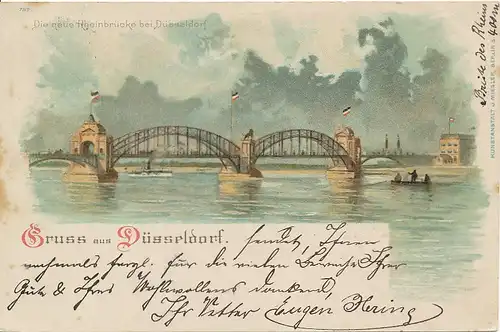 Die neue Rheinbrücke bei Düsseldorf.
Breite des Rheins
400m
KUNSTANSTALT J. MIESLER, BERLIN S.
Gruss aus Düsseldorf. sendet, Ihnen
nochmals herzl. für die vielen Beweise Ihrer
Güte & Ihres Wohlwollens dankend,
Ihr Vetter Eugen Hering